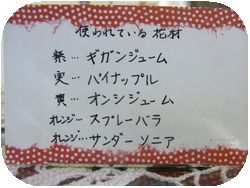 使われている 花材
紫… ギガンジューム
実… パイナップル
黄… オンシジューム
オレンジ… スプレーバラ
オレンジ… サンダーソニア